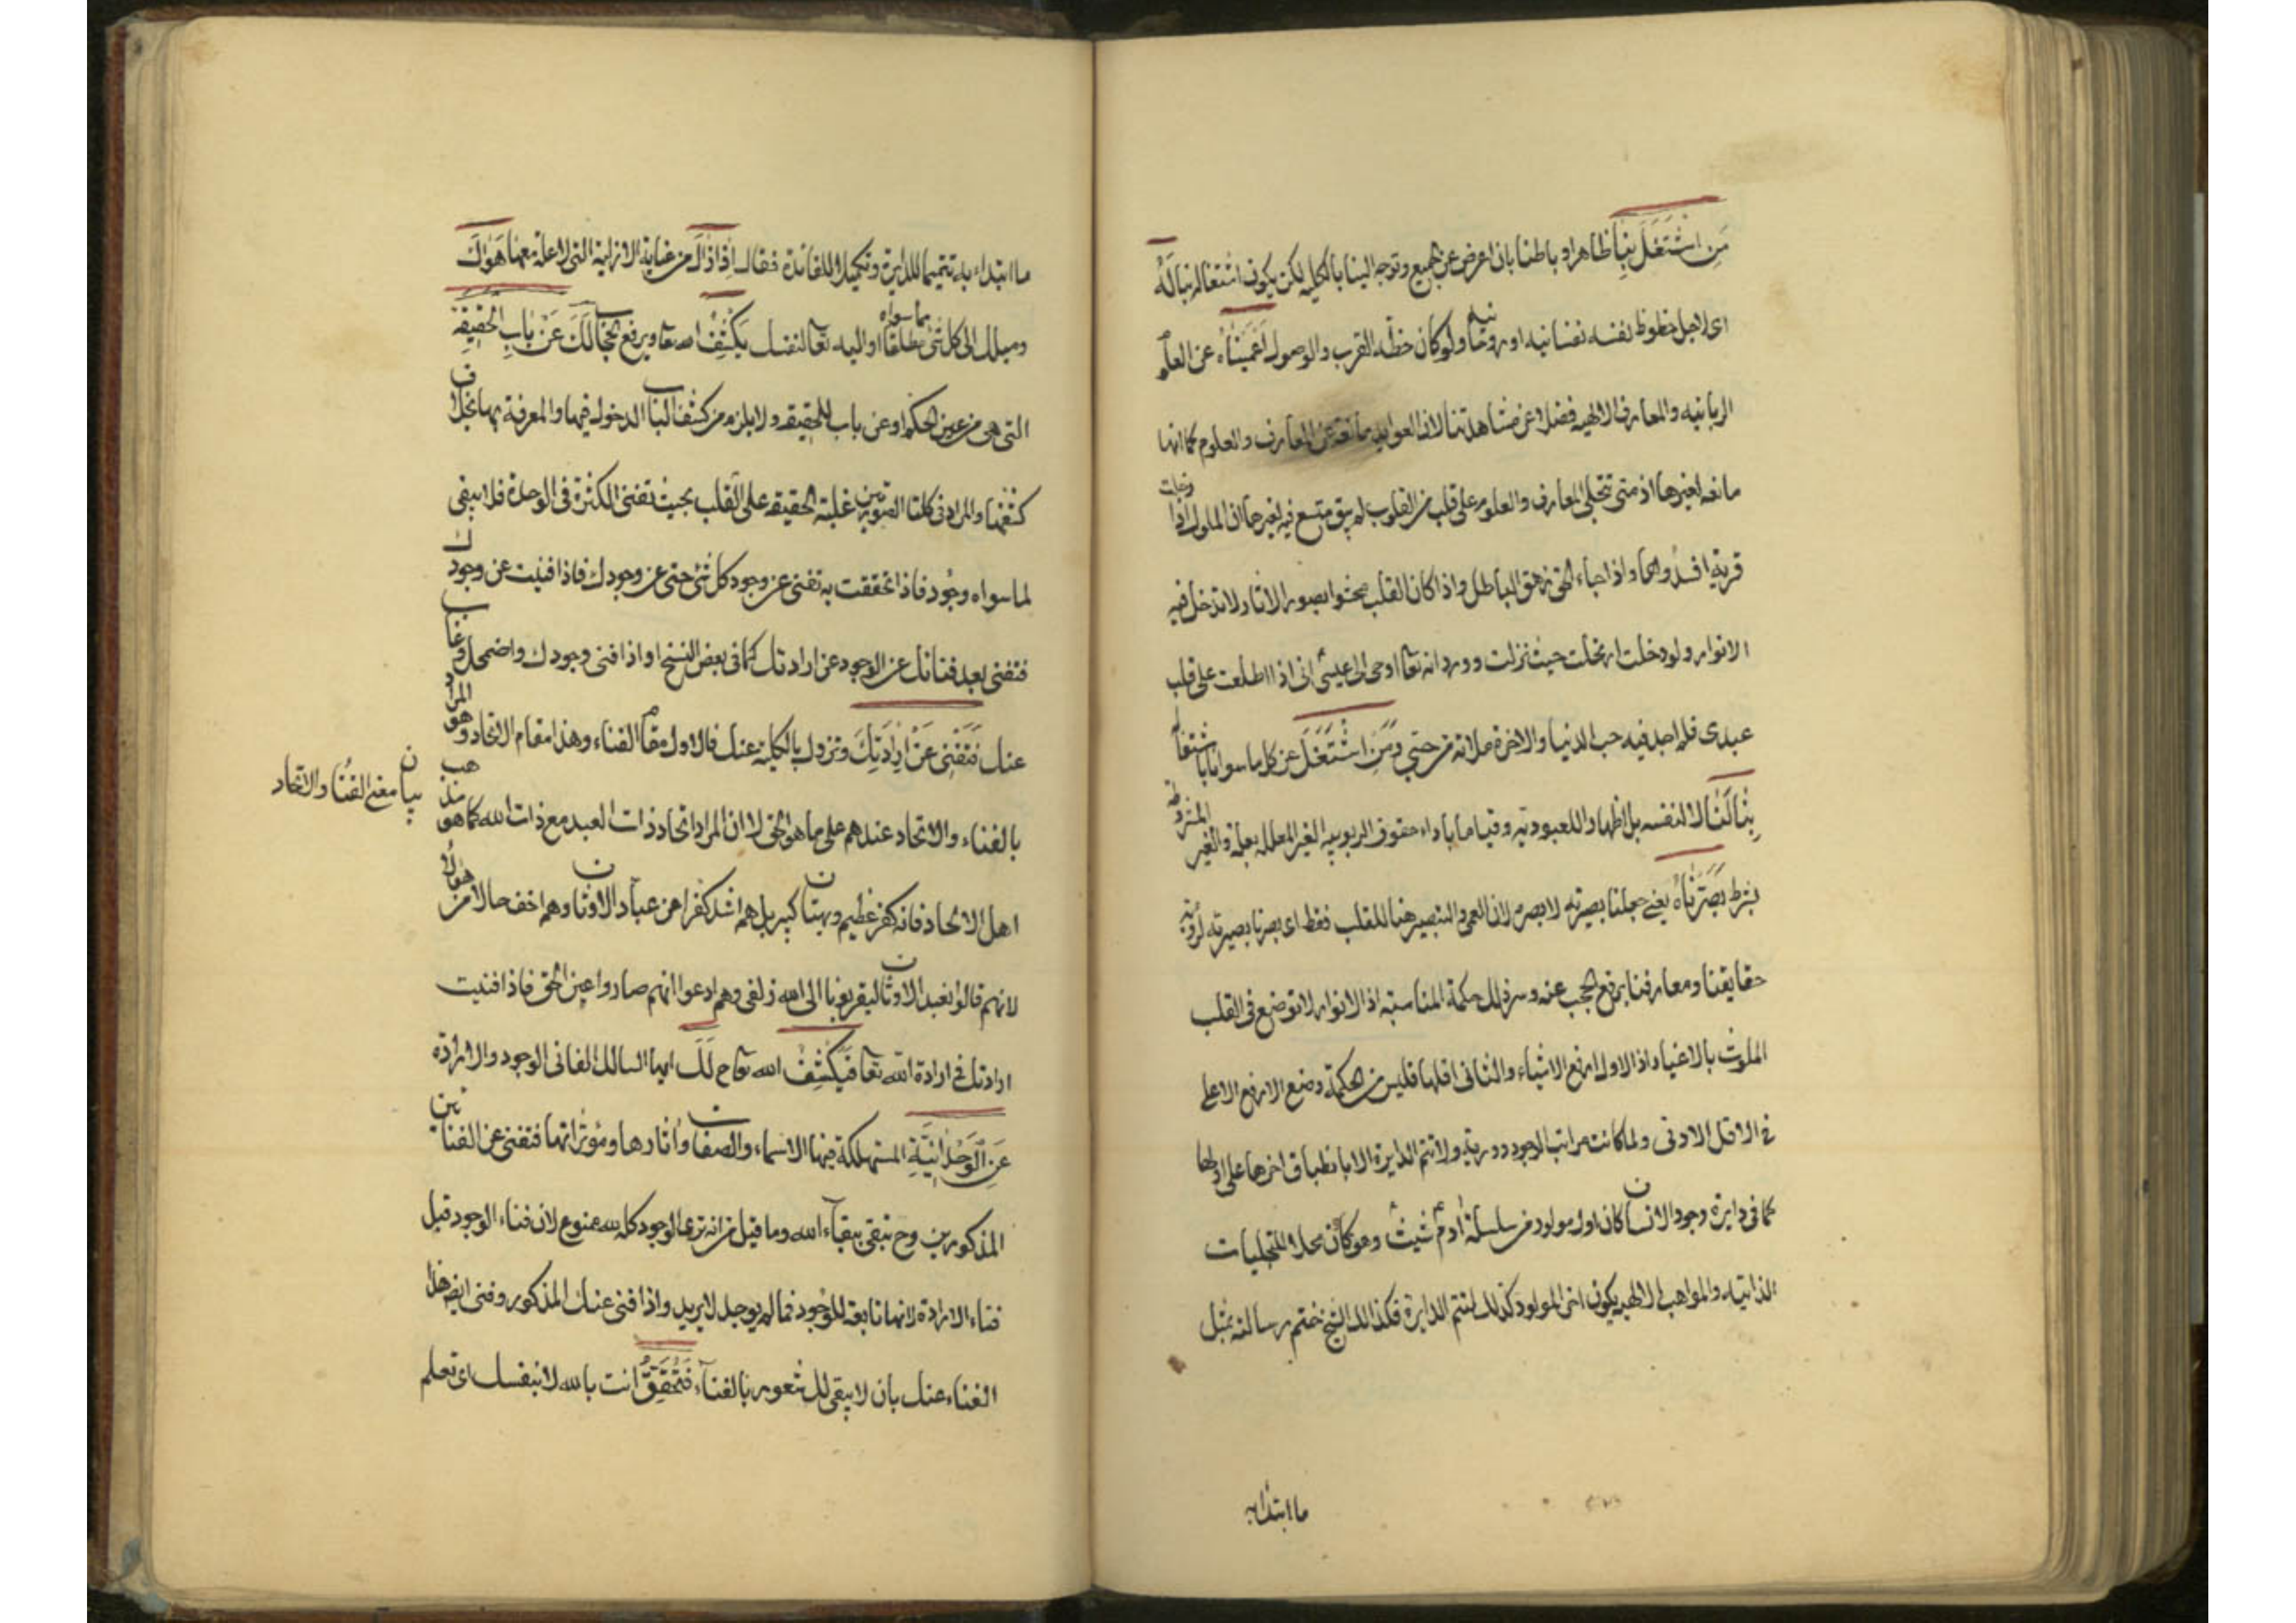 مَنِ اشْتَغَلَ بِنَا ظاهرا و باطنا بان اعرض عن الجميع وتوجه الينا بالكليه لكن يكون اشتغاله بنا لَهُ
اى لاجل حظوظ نفسه نفسانيه او روحانيه ولو كان حظه القرب والوصول اَعْمَيْنَاهُ عن العلوم
الربانيه والمعارف الالهيه فضلا عن مشاهدتنا لان العوايد مانعة عن المعارف والعلوم كما انها
مانعه لغيرها اذ متى تتجلى المعارف والعلوم على قلب من القلوب لم يبق متسع فيه لغيرها ان الملوك اذا دخلت
قرية افسدوها واذا جاء الحق زهق الباطل واذا كان القلب محشوا بصور الاثار لا تدخل فيه
الانوار ولو دخلت ارتحلت حيث نزلت وورد انه تعا اوحى الى عيسى انى اذا اطلعت على قلب
عبدى فلم اجد فيه حب الدنيا والاخرة ملأته من حبى وَمَنِ اشْتَغَلَ عن كل ما سوانا باشتغاله
بِنَا لَنَا لا لنفسه بل اظهارا للعبوديه وقياما باداء حقوق الربوبيه الغير المعلله بعلة والغير المشروطه
بشرط بَصَّرْنَاهُ يعنى جعلنا بصيرته لا بصره لان العمى والتبصير هنا للقلب فقط اى بصرنا بصيرته لرؤية
حقايقنا ومعارفنا برفع الحجب عنه وسر ذلك حكمة المناسبة اذ الانوار لا توضع فى القلب
الملوث بالاغيار اذ الاول ارفع الاشياء والثانى اقلها فليس من الحكمة وضع الارفع الاعلى
فى الاقل الادنى ولما كانت مراتب الوجود دورية ولا تتم الدايرة الا بانطباق اخرها على اولها
كما فى دايرة وجود الانسان كان اول مولود من سلسلة ادم شيث وهو كان محلا للتجليات
الذاتيه والمواهب الالهيه يكون اخر المولود كذلك لتتم الدايرة فكذلك الشيخ ختم رسالته بمثل
ما ابتدا به
ما ابتداء به تتميما للدايرة وتكميلا للفائدة فقال اِذَا زَالَ من عناية الازلية التى لا علة معها هَوَاكَ
وميلك الى كل شئ مطلقا مما سواه او اليه تعا لنفسك يَكْشِفُ الله تعا ويرفع الحجاب لَكَ عَنْ بَابِ الْحَقِيقَةِ
التى هى من عين الحكم او عن باب الحقيقه ولا يلزم من كشف الباب الدخول فيها والمعرفة بها بخلاف
كشفها والمراد فى كلتا الصورتين غلبة الحقيقه على القلب بحيث تفنى الكثرة فى الوحدة فلا يبقى
لما سواه وجود فاذا تحققت به تفنى عن وجود كل شئ حتى عن وجودك فاذا فنيت عن وجودك
فتفنى بعد فنائك عن الوجود عن ارادتك كما فى بعض النسخ او اذا فنى وجودك واضمحل وغاب
عنك فَتَفْنِى عَنْ اِرَادَتِكَ وتزول بالكلية عنك فالاول مقام الفناء وهذا مقام الاتحاد وهو المراد
بالفناء والاتحاد عندهم على ما هو الحق لا ان المراد اتحاد ذات العبد مع ذات الله كما هو مذهب
بيان معنى الفنا والاتحاد
اهل الالحاد فانه كفر عظيم وبهتان كبير بل هم اشد كفرا من عباد الاوثان وهم اخف حالا من هؤلاء
لانهم قالوا نعبد الاوثان ليقربونا الى الله زلفى وهم ادعوا انهم صاروا عين الحق فاذا فنيت
ارادتك فى ارادة الله تعا فَيَكْشِفُ الله تعا ح لَكَ ايها السالك الفانى الوجود والاراده
عَنِ الْوَحْدَانِيَّةِ المستهلكة فيها الاسماء والصفات واثارها ومؤثراتها فتفنى عن الفنائين
المذكورين وح تبقى ببقاء الله وما قيل من انه ترى الوجود كله لله ممنوع لان فناء الوجود قبل
فناء الاراده لانها تابعة للوجود فما لم يوجد لا يريد واذا فنى عنك المذكور وفنى ايضا هذا
الفناء عنك بان لا يبقى لك شعور بالفناء فَتُحَقِّقُ انت بالله لا بنفسك اى تعلم